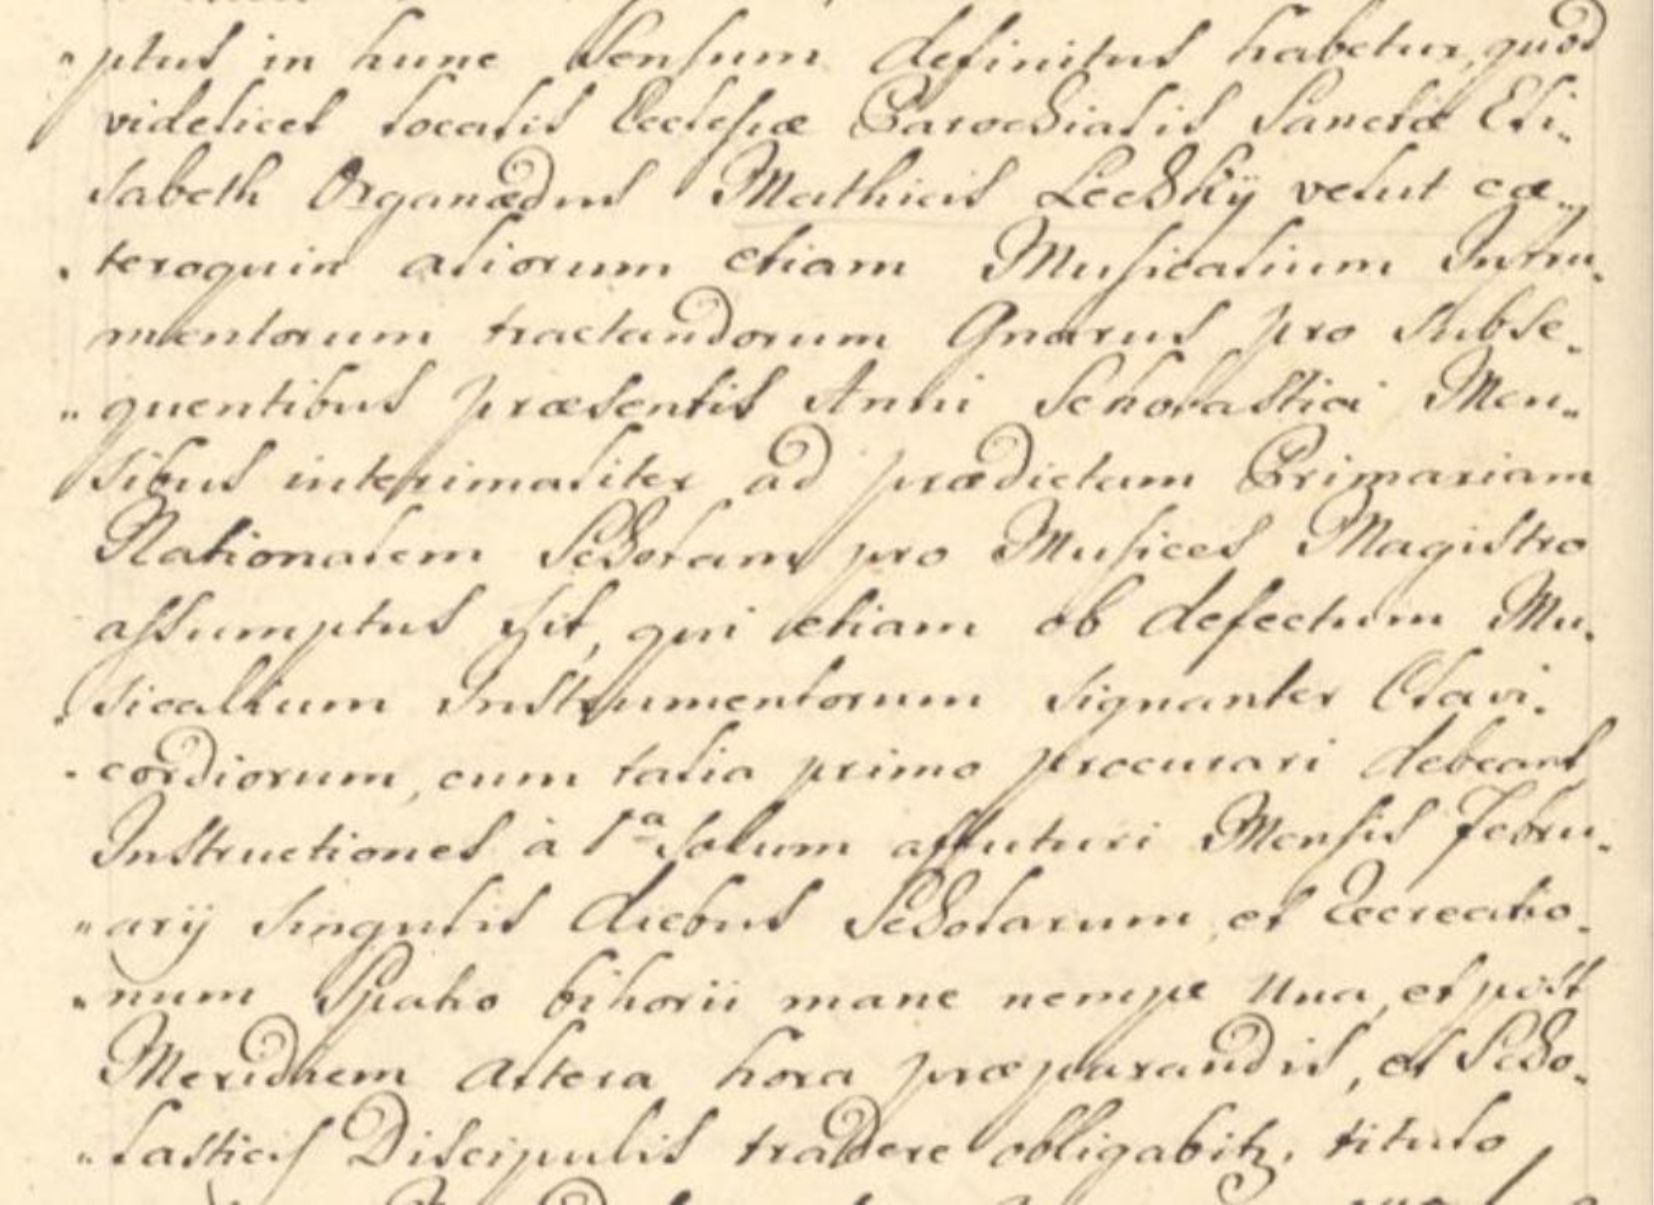 "ptus in hunc Sensum definitus habetur, quod
videlicet localis Ecclesiæ Parochialis Sanctæ Eli-
sabeth Organædus Mathias Lechkÿ velut cæ-
-teroquin aliorum etiam Musicalium Instru-
mentorum tractandorum Gnarus pro subse-
"quentibus præsentis Anni Scholastici Men-
sibus interimaliter ad prædictam Primariam
Nationalem Scholam pro Musices Magistro
assumptus sit, qui etiam ob defectum Mu-
-sicalium Instrumentorum signanter Clavi-
-cordiorum, cum talia primo procurari debeant
Instructiones à 1a solum affuturi Mensis Febru-
"arij singulis diebus Scholarum, et Recreatio-
"num Spatio bihorii mane nempe una, et post
Meridiem altera hora præparandis, et Scho-
"lasticis Discipulis tradere obligabitr. titulo